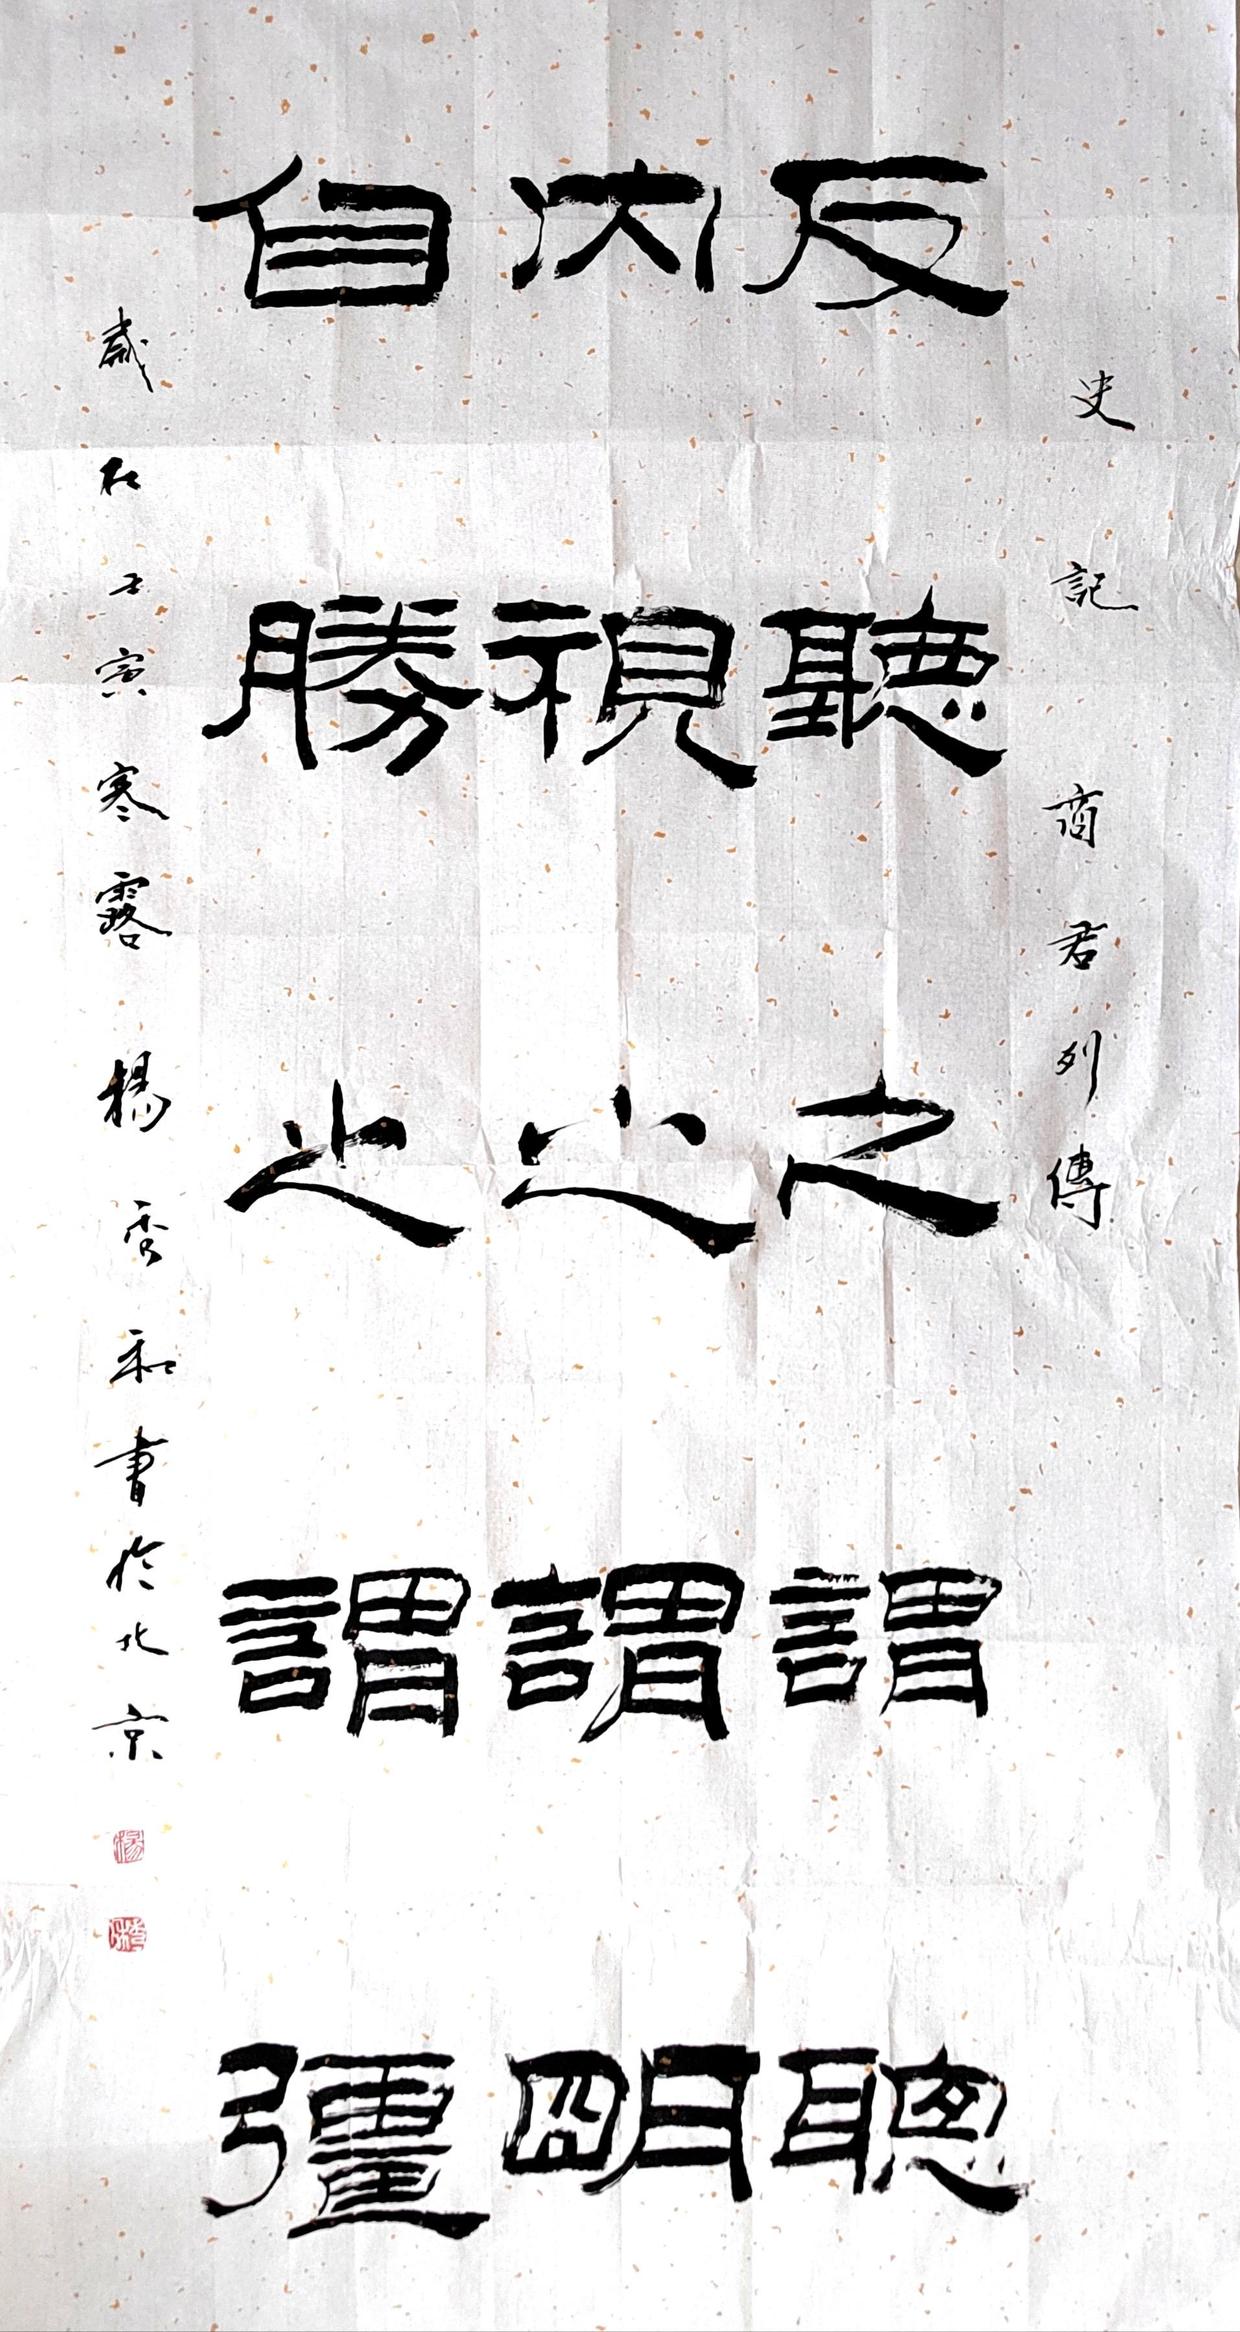 史記商君列傳
反聽之謂聰
內視之謂明
自勝之謂彊
歲在壬寅寒露楊秀和書於北京
楊